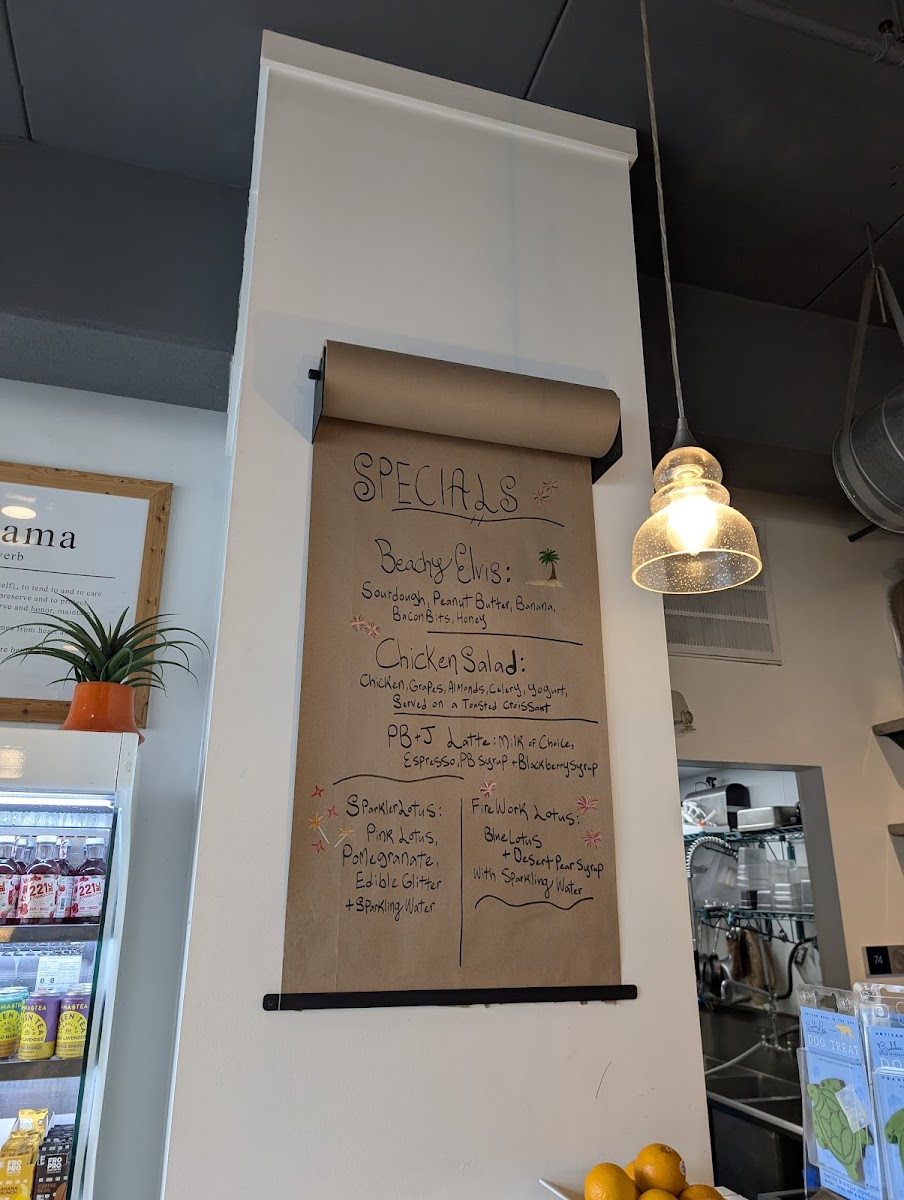 SPECIALS
Beachy Elvis:
Sourdough, Peanut Butter, Banana,
Bacon Bits, Honey
Chicken Salad:
Chicken, Grapes, Almonds, Celery, Yogurt,
Served on a Toasted Croissant
PB+J Latte: Milk of Choice,
Espresso, PB Syrup + Blackberry Syrup
Sparkler Lotus:
Pink Lotus,
Pomegranate,
Edible Glitter
+ Sparkling Water
FireWork Lotus:
Blue Lotus
+ Desert Pear Syrup
With Sparkling Water
ama
verb
self), to tend to and to care
preserve and to protect
rve and honor, maintain
221
221
DOG TREAT
74
FRO
PRO